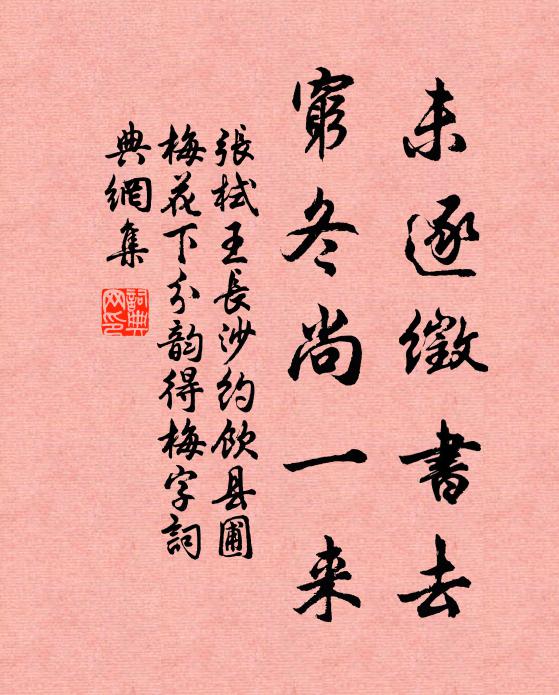 未逐徵書去
窮冬尚一来
張栻王長沙約飲县圃
梅花下分韵得梅字詞
典網集
詞典网印